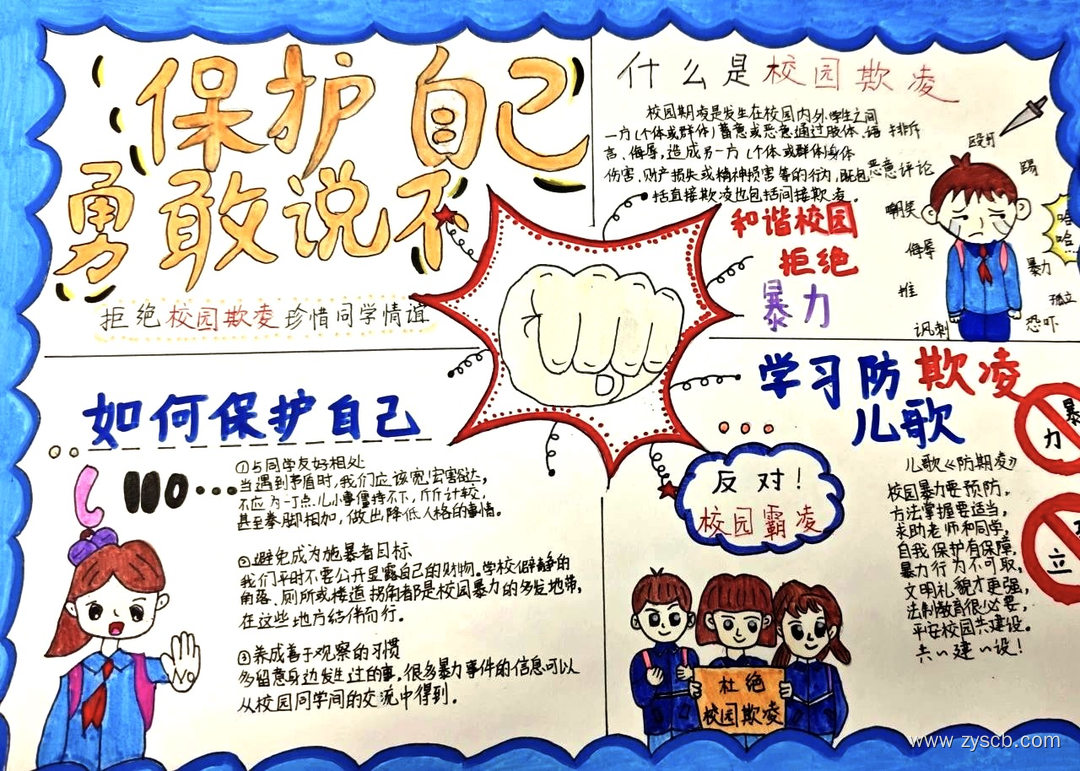 保护自己
勇敢说不
拒绝校园欺凌 珍惜同学情谊
什么是校园欺凌
校园期凌是发生在校园内外,学生之间
一方(个体或群体)蓄意或恶意通过肢体、语
言、侮辱,造成另一方(个体或群体)身体
伤害、财产损失或精神损害等的行为,既包
括直接欺凌也包括间接欺凌。
殴打
踢
排斥
恶意评论
嘲笑
侮辱
推
讽刺
哈
哈...
暴力
孤立
恐吓
和谐校园
拒绝
暴力
如何保护自己
110...
①与同学友好相处
当遇到矛盾时,我们应该宽宏豁达,
不应为一丁点儿小事僵持不下,斤斤计较,
甚至拳脚相加,做出降低人格的事情。
②避免成为施暴者目标
我们平时不要公开显露自己的财物,学校僻静的
角落、厕所或楼道拐角都是校园暴力的多发地带,
在这些地方结伴而行。
③养成善于观察的习惯
多留意身边发生过的事,很多暴力事件的信息可以
从校园同学间的交流中得到。
No
反对!
校园霸凌
杜绝
校园欺凌
学习防欺凌
儿歌
儿歌《防期凌》
校园暴力要预防,
方法掌握要适当,
求助老师和同学,
自我保护有保障,
暴力行为不可取,
文明礼貌才更强,
法制教育很必要,
平安校园共建设。
共~建~设!
暴
力
立
www.zyscb.com